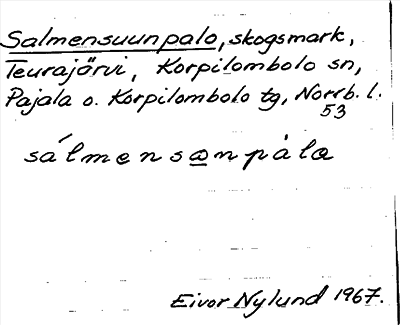 Salmensuunpalo, skogsmark,
Teurajärvi, Korpilombolo sn,
Pajala o. Korpilombolo tg, Norrb. l.
53
sálmensꙍnpàla
Eivor Nylund 1967.